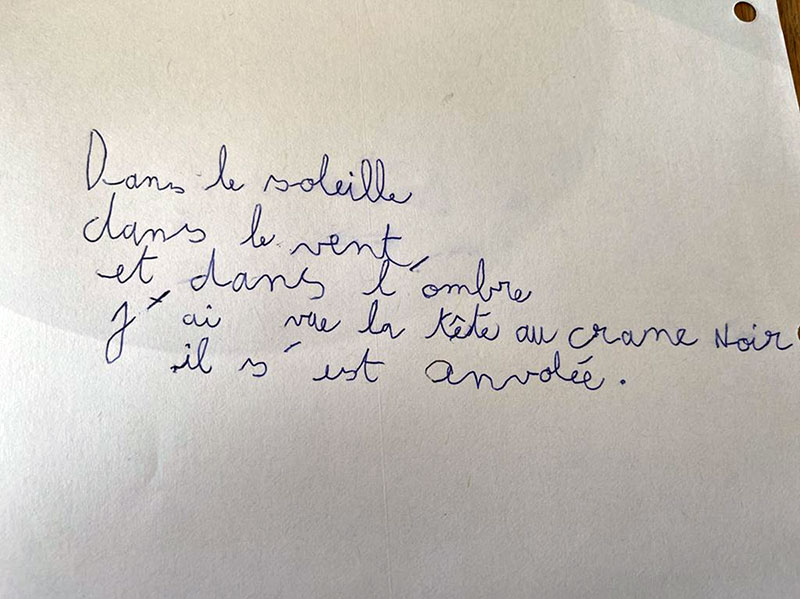 Dans le soleille
dans le vent
et dans l'ombre
j'ai vue la tête au crane Noir
il s'est anvolée.